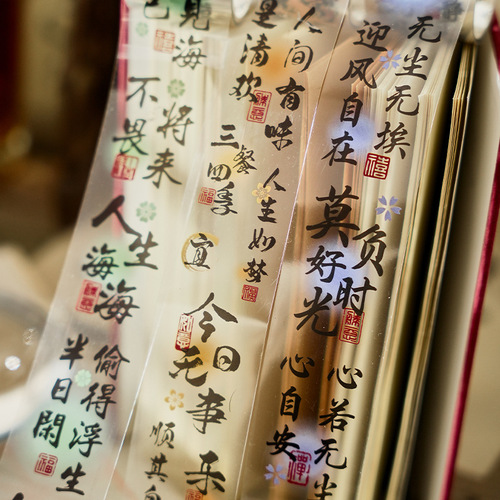 无尘无埃
迎风自在
莫负好时光
心若无
心自安
人间有味
是清欢
三餐四季
人生如梦
宜
今日无事
乐
顺其自
见海
已
将来
不畏
人生海海
偷得浮生
半日閑